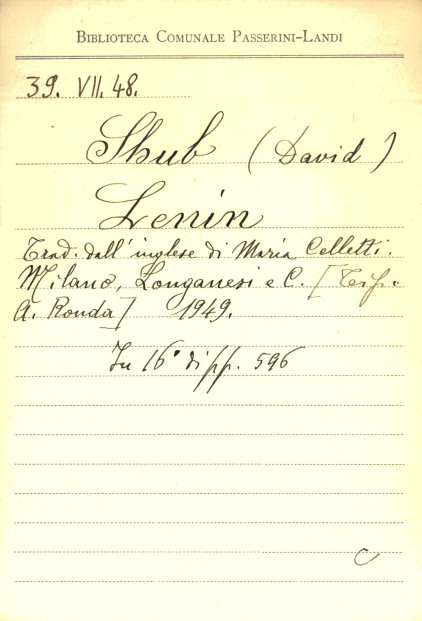 BIBLIOTECA COMUNALE PASSERINI-LANDI
39. VII. 48.
Shub (David)
Lenin
Trad. dall'inglese di Maria Celletti.
Milano, Longanesi e C. [Tip.
A. Ronda] 1949.
In 16° di pp. 596
C